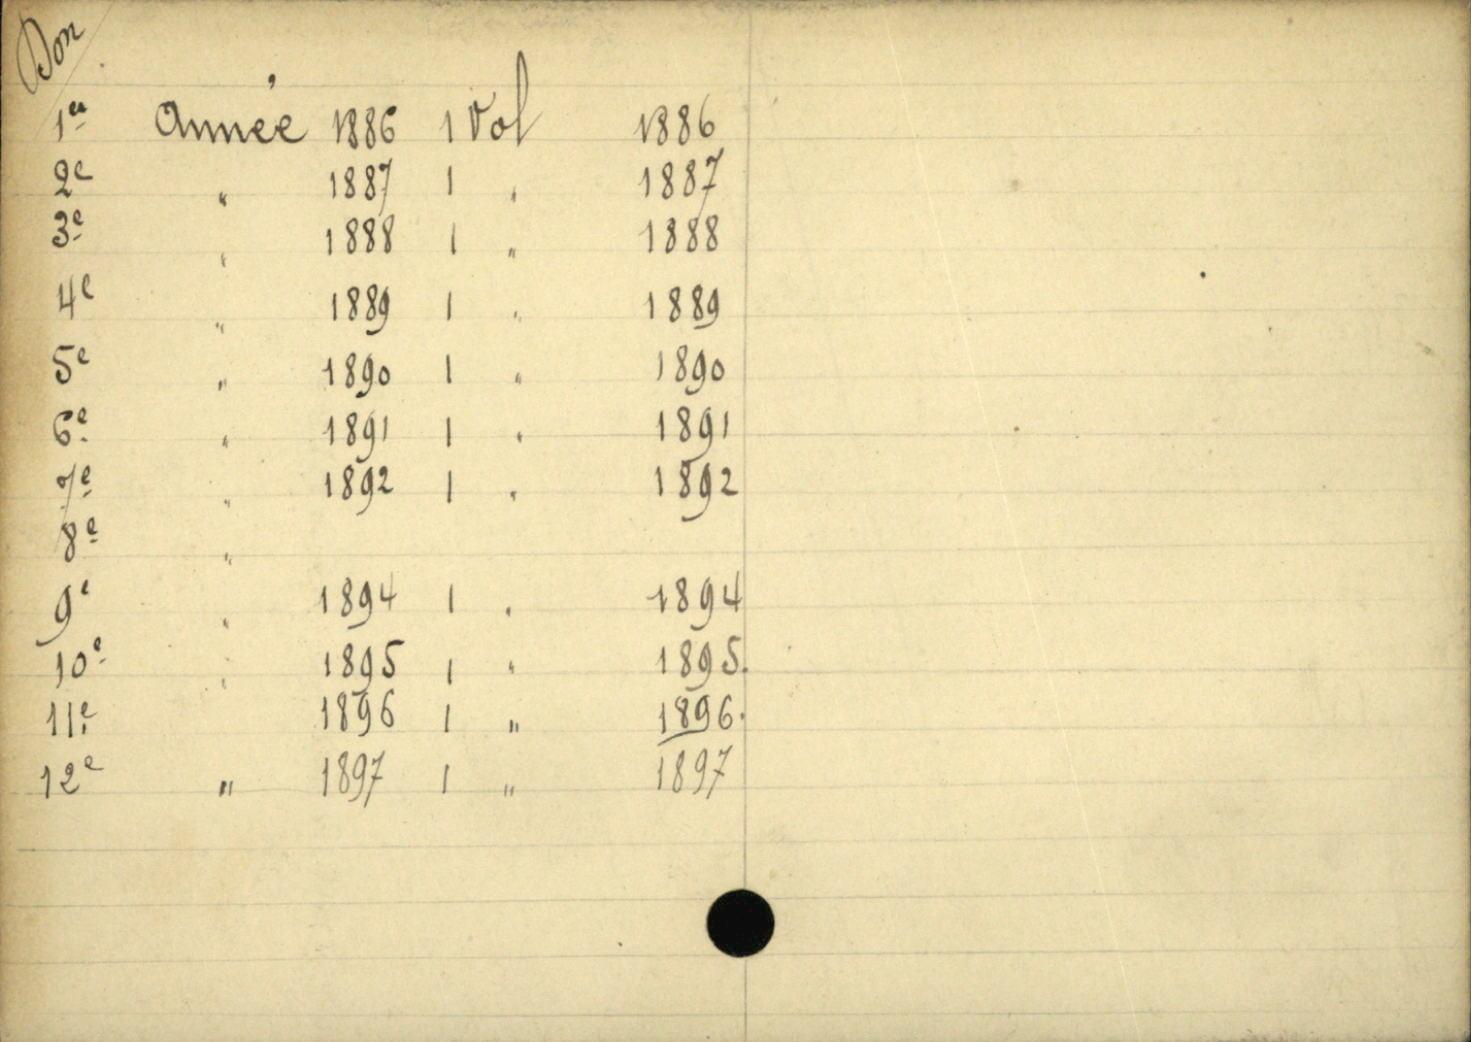 Don
1er Année 1886 1 Vol 1886
2e " 1887 1 " 1887
3e " 1888 1 " 1888
4e " 1889 1 " 1889
5e " 1890 1 " 1890
6e " 1891 1 " 1891
7e " 1892 1 " 1892
8e "
9e " 1894 1 " 1894
10e " 1895 1 " 1895.
11e 1896 1 " 1896.
12e " 1897 1 " 1897